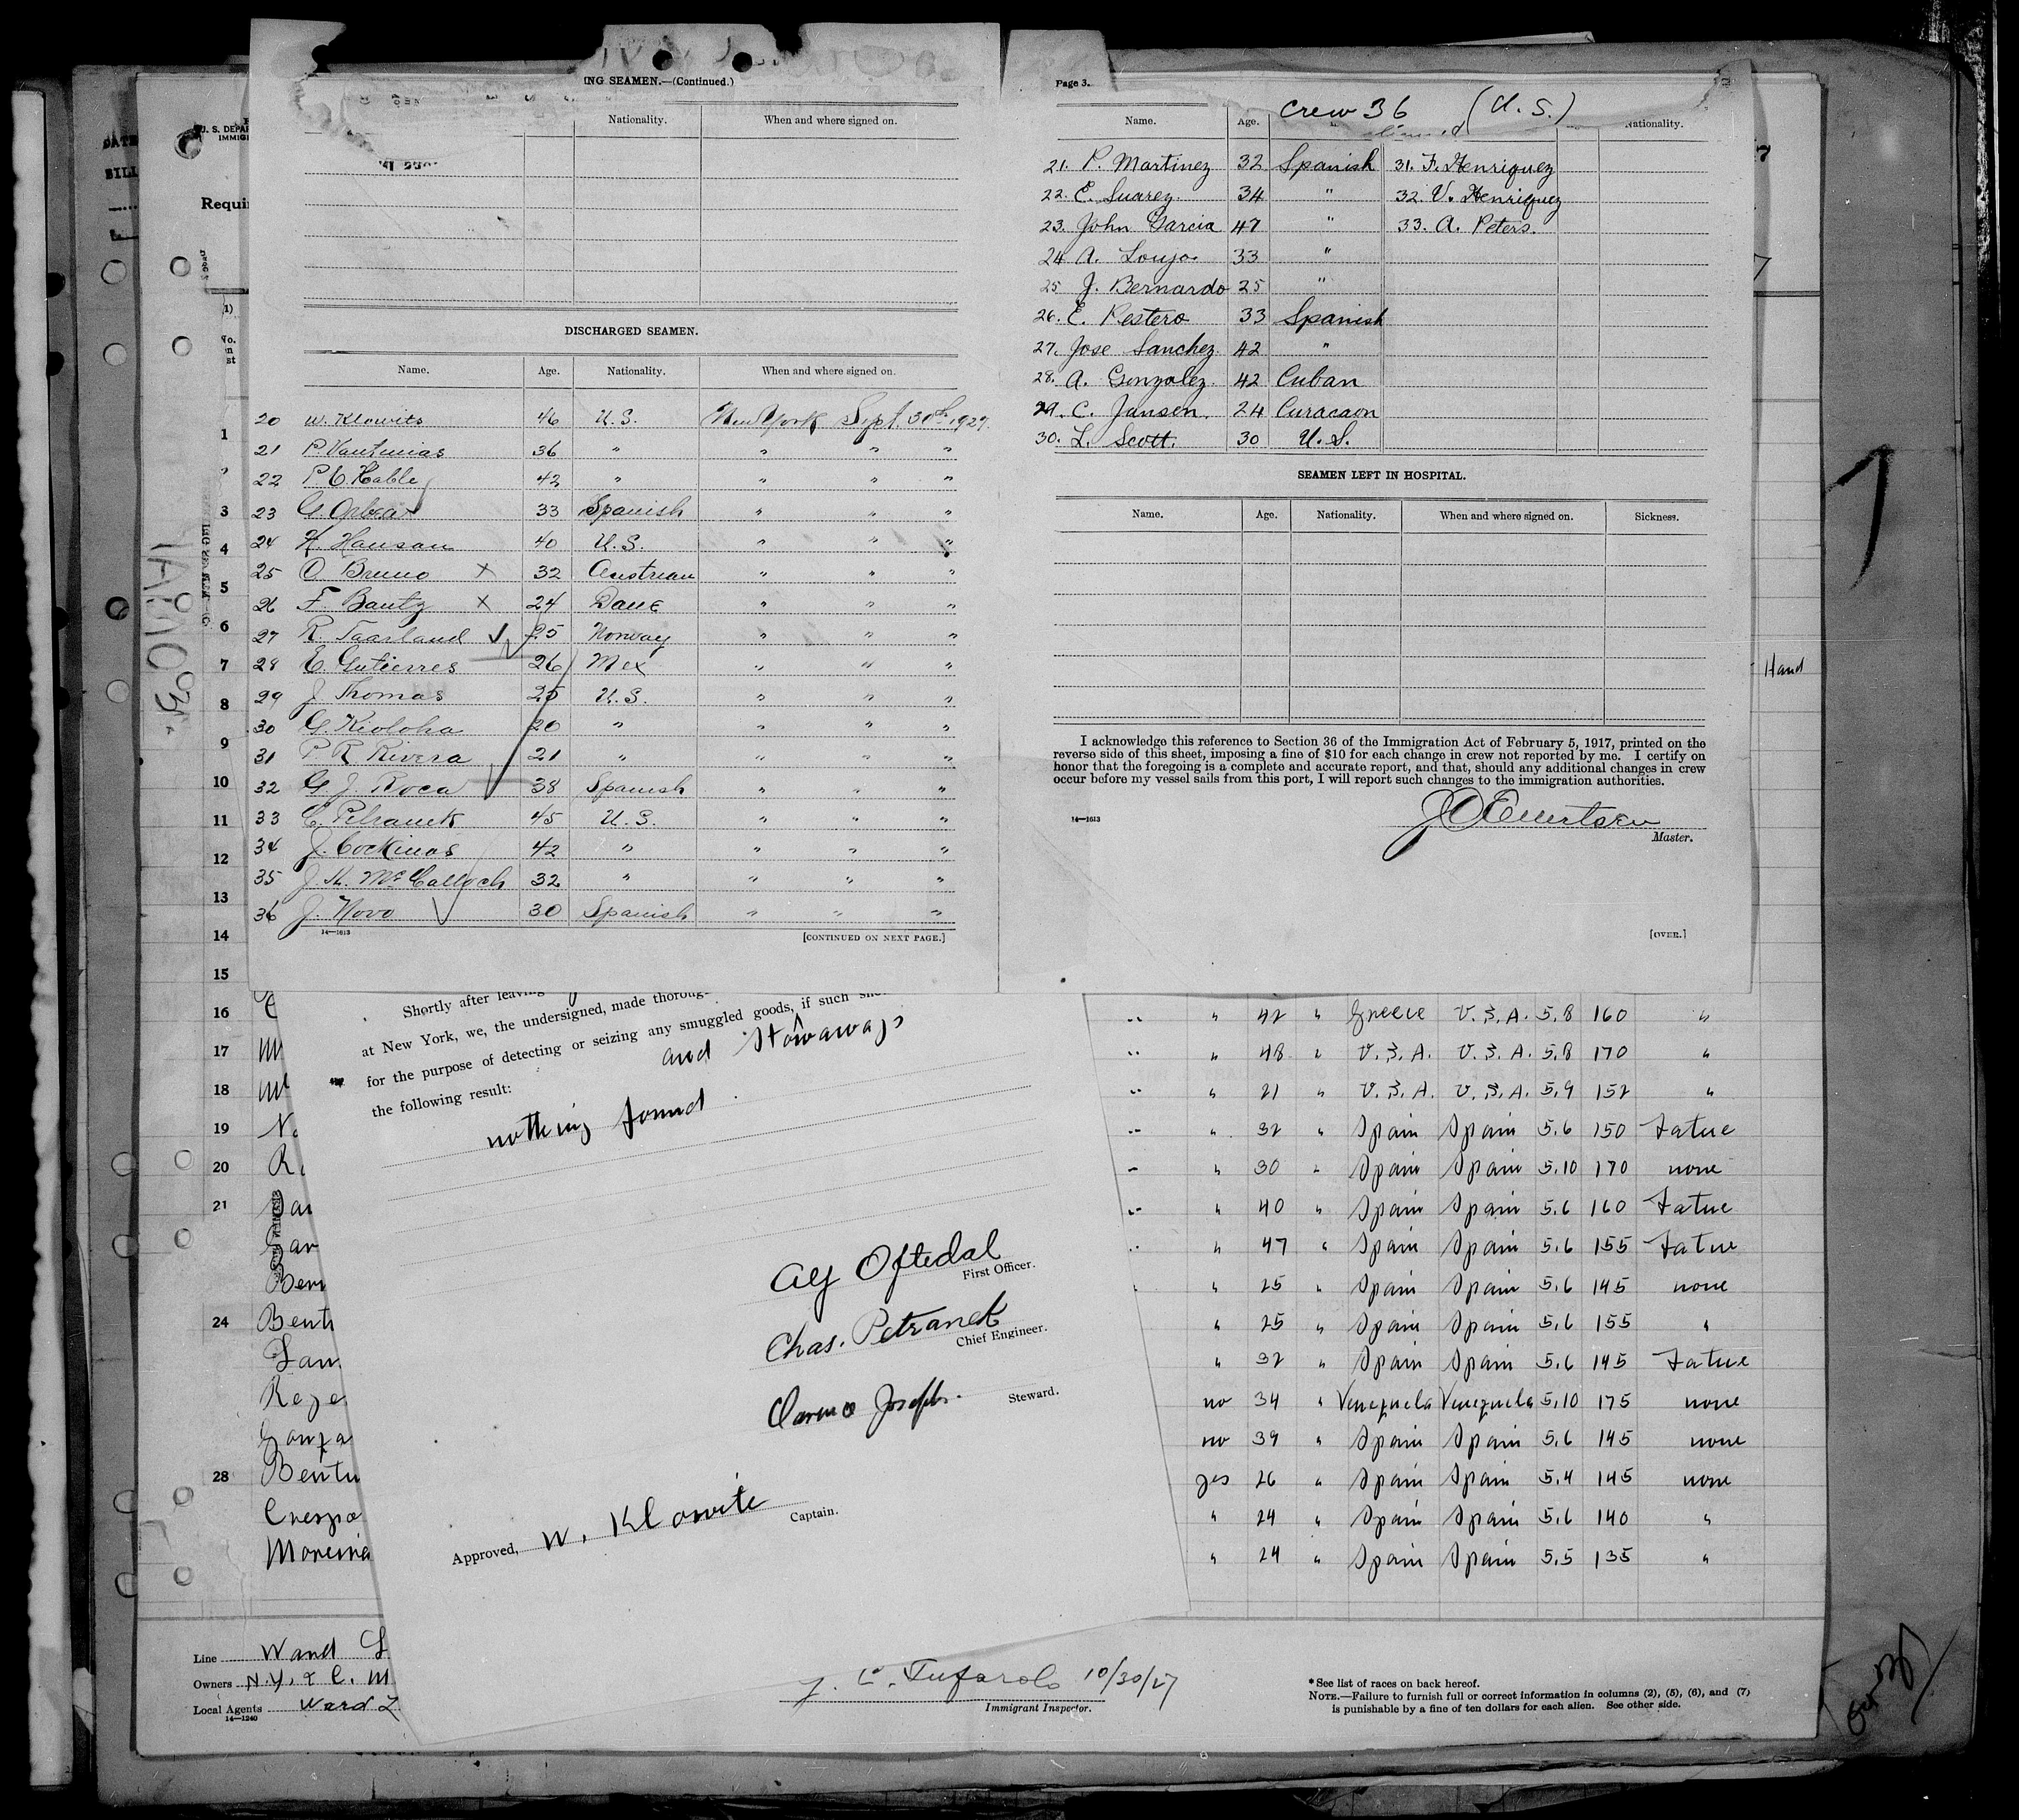 ING SEAMEN.—(Continued.)
Nationality. When and where signed on.
DISCHARGED SEAMEN.
Name. Age. Nationality. When and where signed on.
20 W. Klowits 46 U.S. New York Sept. 30th 1927.
21 P. 36 " " " "
22 P C. Hable 42 " " " "
23 G. 33 Spanish " " "
24 H. Hansan 40 U.S. " " "
25 O Bruno X 32 Austrian " " "
26 F. Bautz X 24 Dane " " "
27 R. Taarland 25 Norway " " "
28 E. Gutierres 26 Mex " " "
29 J Thomas 25 U.S. " " "
30 G. Kioloha 20 " " " "
31 P R Rivera 21 " " " "
32 G. J. Roca 38 Spanish " " "
33 C. Petranek 45 U.S. " " "
34 J. Cockinos 42 " " " "
35 J. H. McCalloch 32 " " " "
36 J. Novo 30 Spanish " " "
14—1613
[CONTINUED ON NEXT PAGE.]
Page 3.
Crew 36 (U.S.)
Name. Age. Nationality.
21. P. Martinez 32 Spanish 31. F. Henriquez
22. E. Suarez. 34 " 32. V. Henriquez
23. John Garcia 47 " 33. A. Peters.
24 A. Loujo 33 "
25 J. Bernardo 25 "
26. E. Restero 33 Spanish
27. Jose Sanchez. 42 "
28. A. Gonzalez. 42 Cuban
29. C. Jansen. 24 Curacaon
30. L. Scott. 30 U.S.
SEAMEN LEFT IN HOSPITAL.
Name. Age. Nationality. When and where signed on. Sickness.
I acknowledge this reference to Section 36 of the Immigration Act of February 5, 1917, printed on the
reverse side of this sheet, imposing a fine of $10 for each change in crew not reported by me. I certify on
honor that the foregoing is a complete and accurate report, and that, should any additional changes in crew
occur before my vessel sails from this port, I will report such changes to the immigration authorities.
Master.
14—1613
[OVER.]
Hand
U. S. DEPAR
IMMIG
Requi
1
3
4
5
6
7
8
9
10
11
12
13
14
15
16
17
18
19
20
21
24 Bent
28 Bentu
Crespo
Shortly after leaving
at New York, we, the undersigned, made thoroug
for the purpose of detecting or seizing any smuggled goods, if such
and stowaways
the following result:
nothing found
Alf Oftedal
First Officer.
Chas. Petranek
Chief Engineer.
Clarence Joseph.
Steward.
Approved, W. Klowite
Captain.
" 42 " Greece U.S.A. 5,8 160 "
" 48 " U.S.A. U.S.A. 5,8 170 "
" 21 " U.S.A. U.S.A. 5,9 152 "
" 32 " Spain Spain 5,6 150 Tatue
" 30 " Spain Spain 5,10 170 none
" 40 " Spain Spain 5,6 160 Tatue
" 47 " Spain Spain 5,6 155 Tatue
" 25 " Spain Spain 5,6 145 none
" 25 " Spain Spain 5,6 155 "
" 32 " Spain Spain 5,6 145 Tatue
no 34 " Venezuela Venezuela 5,10 175 none
no 39 " Spain Spain 5,6 145 none
yes 26 " Spain Spain 5,4 145 none
" 24 " Spain Spain 5,6 140 "
" 24 " Spain Spain 5,5 135 "
Line Ward
Owners N.Y. & C. M
Local Agents Ward L
14—1240
10/30/27
Immigrant Inspector.
*See list of races on back hereof.
NOTE.—Failure to furnish full or correct information in columns (2), (5), (6), and (7)
is punishable by a fine of ten dollars for each alien. See other side.